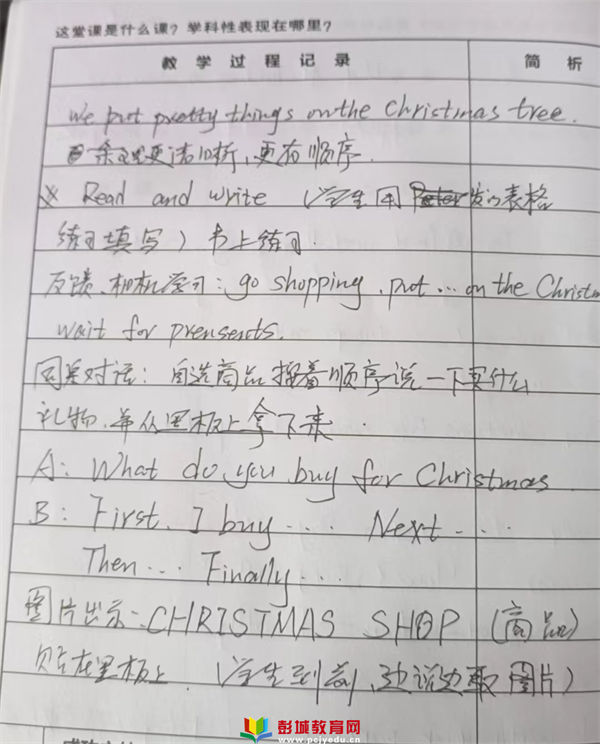 这堂课是什么课？学科性表现在哪里？
教学过程记录 简析
We put pretty things on the Christmas tree.
更清晰，更有顺序.
※ Read and write （学生用发的表格
练习填写）书上练习.
反馈、相机学习：go shopping, put … on the Christm
wait for prensents.
同桌对话：自选商品按着顺序说一下买什么
礼物，并从黑板上拿下来.
A: What do you buy for Christmas
B: First, I buy … Next …
Then … Finally …
图片出示：CHRISTMAS SHOP (商品)
贴在黑板上. （学生到前，边说边取图片）
彭城教育网
www.pcjyedu.cn